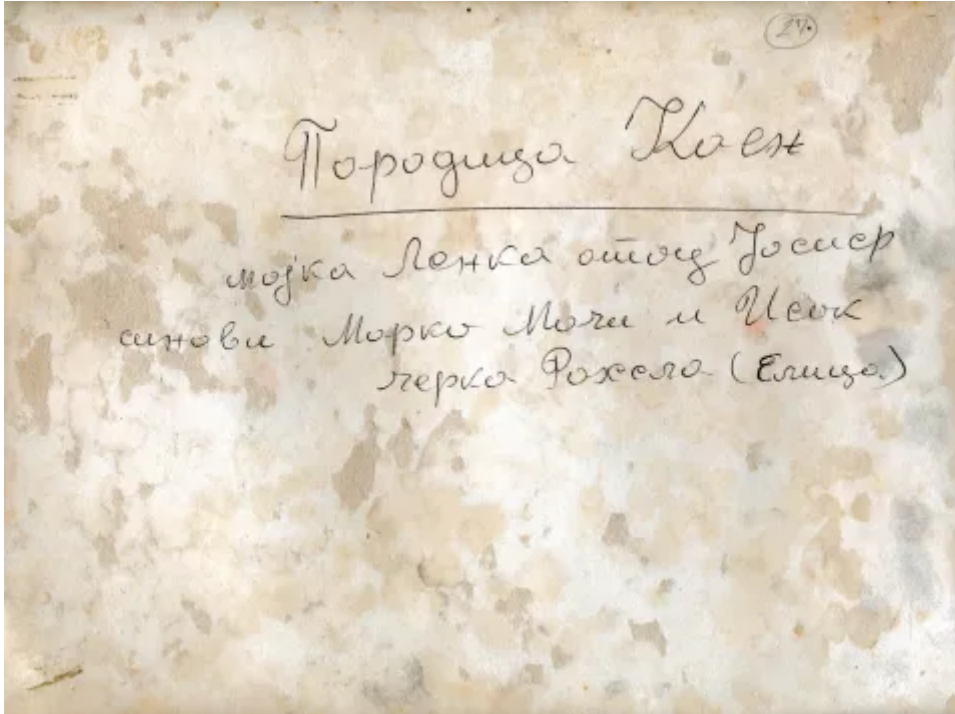 27.
Породица Коен
мајка Ленка отац Јосиф
синови Марко Мачи и Исак
черка Рахела (Елица)